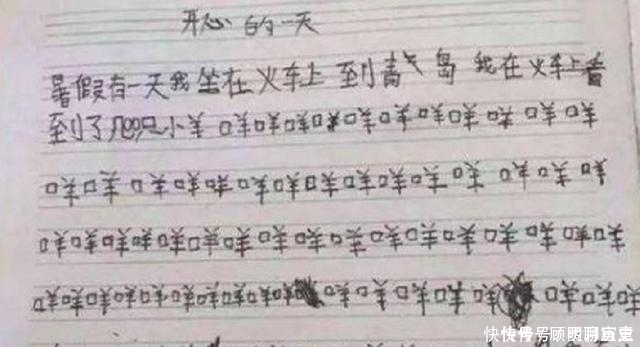 开心的一天
暑假有一天我坐在火车上到青气岛我在火车上看
到了几只小羊咩咩咩咩咩咩咩咩咩咩咩
咩咩咩咩咩咩咩咩咩咩咩咩咩咩咩
咩咩咩咩咩咩咩咩咩咩咩咩咩咩咩咩咩
咩咩咩咩咩咩咩咩咩咩咩咩咩咩咩咩咩咩